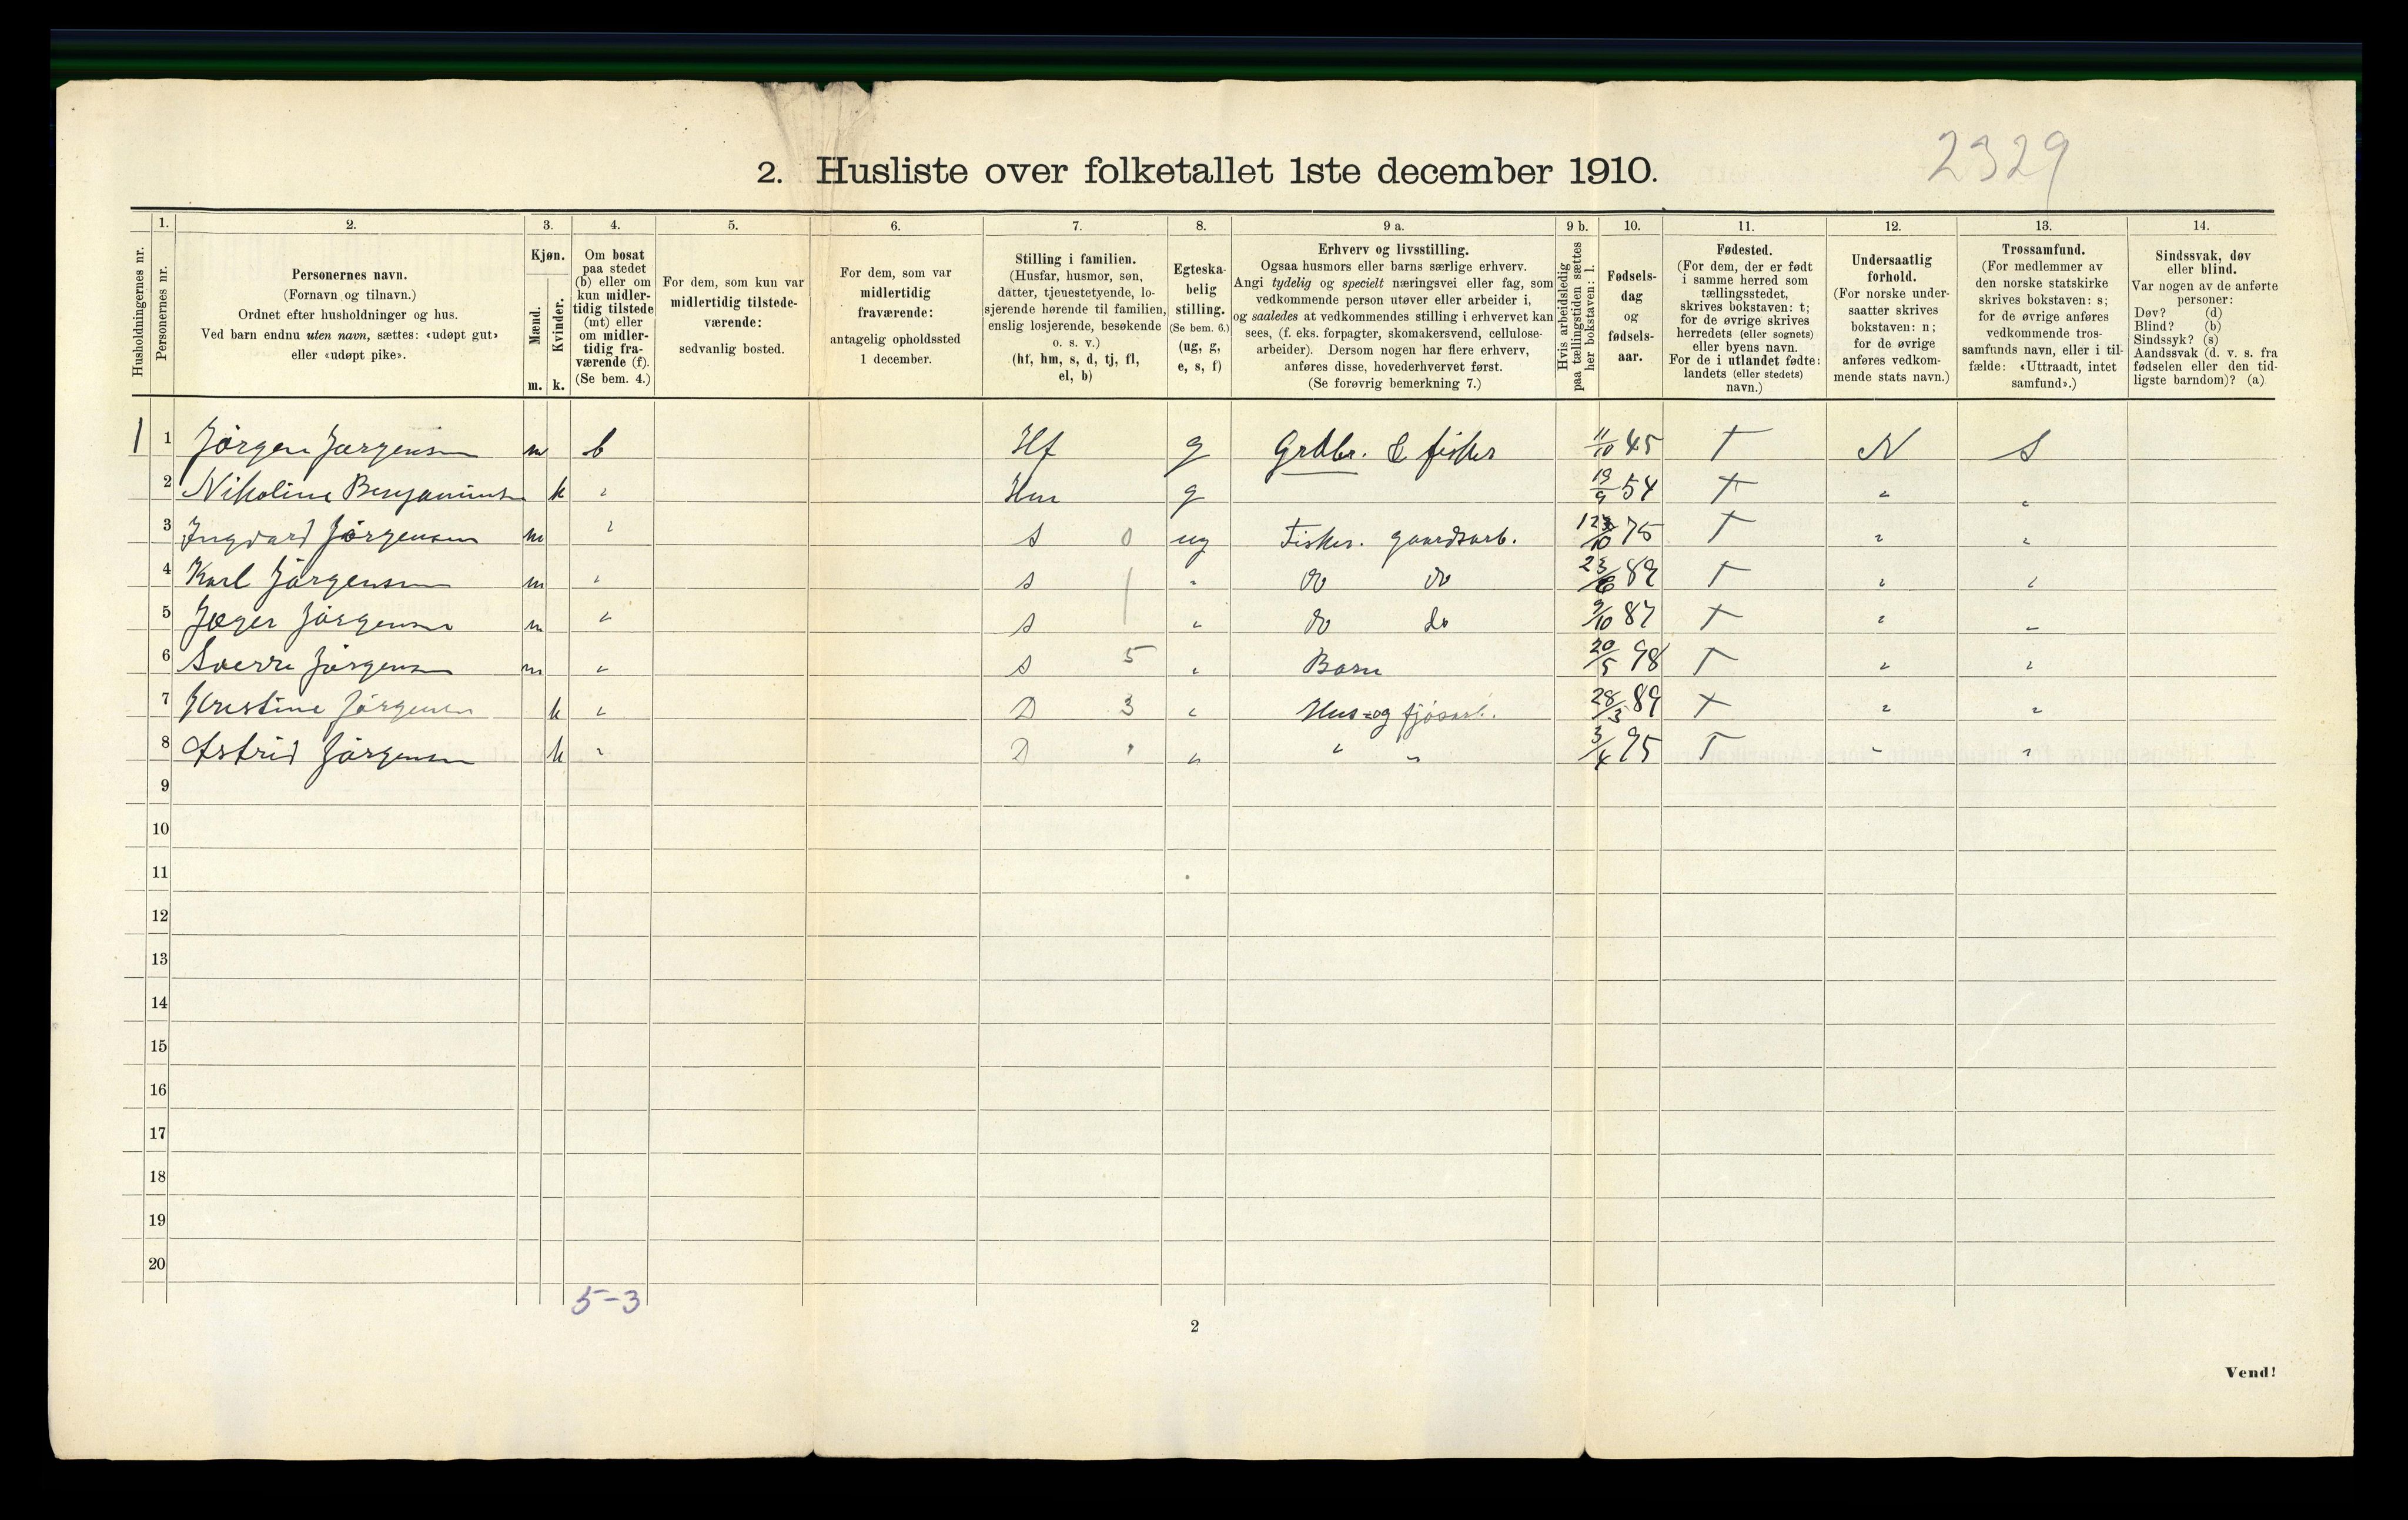 2329
2. Husliste over folketallet 1ste december 1910.
1. 2. 3. 4. 5. 6. 7. 8. 9 a. 9 b. 10. 11. 12. 13. 14.
Husholdningernes nr.
Personernes nr.
Personernes navn.
(Fornavn og tilnavn.)
Ordnet efter husholdninger og hus.
Ved barn endnu uten navn, sættes: «udøpt gut»
eller «udøpt pike».
Kjøn.
Mænd.
Kvinder.
m. k.
Om bosat
paa stedet
(b) eller om
kun midler-
tidig tilstede
(mt) eller
om midler-
tidig fra-
værende (f).
(Se bem. 4.)
For dem, som kun var
midlertidig tilstede-
værende:
sedvanlig bosted.
For dem, som var
midlertidig
fraværende:
antagelig opholdssted
1 december.
Stilling i familien.
(Husfar, husmor, søn,
datter, tjenestetyende, lo-
sjerende hørende til familien,
enslig losjerende, besøkende
o. s. v.)
(hf, hm, s, d, tj, fl,
el, b)
Egteska-
belig
stilling.
(Se bem. 6.)
(ug, g,
e, s, f)
Erhverv og livsstilling.
Ogsaa husmors eller barns særlige erhverv.
Angi tydelig og specielt næringsvei eller fag, som
vedkommende person utøver eller arbeider i,
og saaledes at vedkommendes stilling i erhvervet kan
sees, (f. eks. forpagter, skomakersvend, cellulose-
arbeider). Dersom nogen har flere erhverv,
anføres disse, hovederhvervet først.
(Se forøvrig bemerkning 7.)
Hvis arbeidsledig
paa tællingstiden sættes
her bokstaven: l.
Fødsels-
dag
og
fødsels-
aar.
Fødested.
(For dem, der er født
i samme herred som
tællingsstedet,
skrives bokstaven: t;
for de øvrige skrives
herredets (eller sognets)
eller byens navn.
For de i utlandet fødte:
landets (eller stedets)
navn.)
Undersaatlig
forhold.
(For norske under-
saatter skrives
bokstaven: n;
for de øvrige
anføres vedkom-
mende stats navn.)
Trossamfund.
(For medlemmer av
den norske statskirke
skrives bokstaven: s;
for de øvrige anføres
vedkommende tros-
samfunds navn, eller i til-
fælde: «Uttraadt, intet
samfund».)
Sindssvak, døv
eller blind.
Var nogen av de anførte
personer:
Døv? (d)
Blind? (b)
Sindssyk? (s)
Aandssvak (d. v. s. fra
fødselen eller den tid-
ligste barndom)? (a)
1 1 Jörgen Jørgensen m b Hf g Grdbr. & fisker 11/10 45 T N S
2 Nikoline Benjaminsen k " Hm g 19/9 54 T " "
3 Ingvard Jörgensen m " s 0 ug Fisker. gaardsarb. 75 T " "
4 Karl Jörgensen m " s 1 " do do T " "
5 Jæger Jörgensen m " s " do do 9/10 87 T " "
6 Sverre Jörgensen m " s 5 " Barn 20/5 98 T " "
7 Kristine Jörgensen k " D 3 " Hus- og fjösarb. 28/3 89 T " "
8 Astrid Jörgensen k " D " " " " 3/4 95 T " "
9
10
11
12
13
14
15
16
17
18
19
20
5-3
2
Vend!